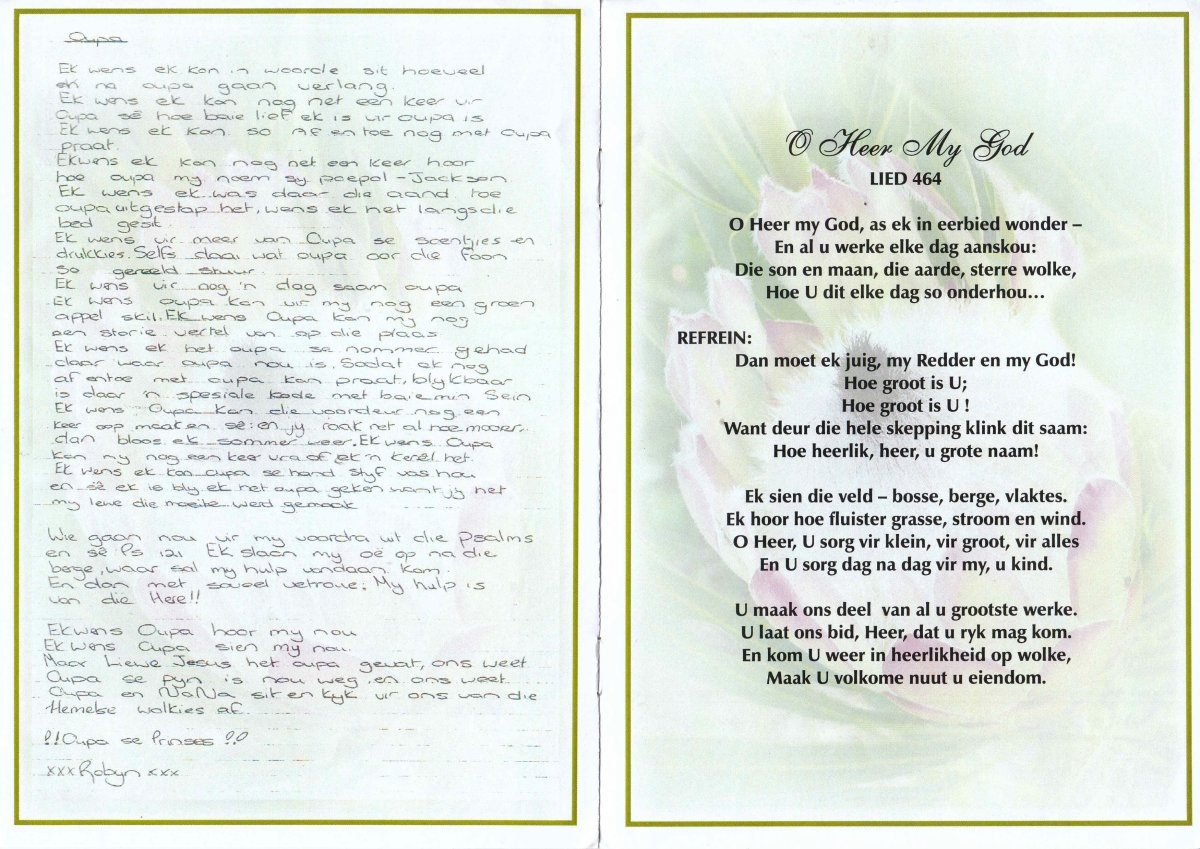 Oupa
Ek wens ek kon in woorde sit hoeveel
ek na oupa gaan verlang.
Ek wens ek kan nog net een keer vir
Oupa sê hoe baie lief ek is vir oupa is
Ek wens ek kan so Af en toe nog met Oupa
praat.
Ek wens ek kan nog net een keer hoor
hoe oupa my noem sy poepol-Jackson
Ek wens ek was daar die aand toe
oupa uitgestap het, wens ek het langs die
bed gesit.
Ek wens vir meer van Oupa se soentjies en
drukkies. Selfs daai wat oupa oor die foon
so gereeld stuur
Ek wens vir nog 'n dag saam oupa
Ek wens oupa kan vir my nog een groen
appel skil. Ek wens Oupa kan my nog
een storie vertel van op die plaas
Ek wens ek het oupa se nommer gehad
daar waar oupa nou is. Sodat ek nog
af entoe met oupa kan praat, blykbaar
is daar 'n spesiale kode met baie min Sein
Ek wens Oupa kan die voordeur nog een
keer oop maak en sê: en jy raak net al hoe mooier,
dan bloos ek sommer weer. Ek wens Oupa
kan my nog een keer vra of ek 'n kerel het.
Ek wens ek kan oupa se hand styf vas hou
en sê ek is bly ek het oupa geken want jy het
my lewe die moeite werd gemaak
Wie gaan nou vir my voordra uit die Psalms
en sê Ps 121 Ek slaan my oë op na die
berge, waar sal my hulp vandaan kom.
En dan met soveel vertroue: My hulp is
van die Here!!
Ek wens Oupa hoor my nou
Ek wens Oupa sien my nou.
Maar Liewe Jesus het oupa gevat, ons weet
Oupa se pyn is nou weg, en ons weet
Oupa en NaNa sit en kyk vir ons van die
Hemelse wolkies af
!!Oupa se Prinses !!
xxx Robyn xxx
O Heer My God
LIED 464
O Heer my God, as ek in eerbied wonder –
En al u werke elke dag aanskou:
Die son en maan, die aarde, sterre wolke,
Hoe U dit elke dag so onderhou…
REFREIN:
Dan moet ek juig, my Redder en my God!
Hoe groot is U;
Hoe groot is U !
Want deur die hele skepping klink dit saam:
Hoe heerlik, heer, u grote naam!
Ek sien die veld – bosse, berge, vlaktes.
Ek hoor hoe fluister grasse, stroom en wind.
O Heer, U sorg vir klein, vir groot, vir alles
En U sorg dag na dag vir my, u kind.
U maak ons deel van al u grootste werke.
U laat ons bid, Heer, dat u ryk mag kom.
En kom U weer in heerlikheid op wolke,
Maak U volkome nuut u eiendom.